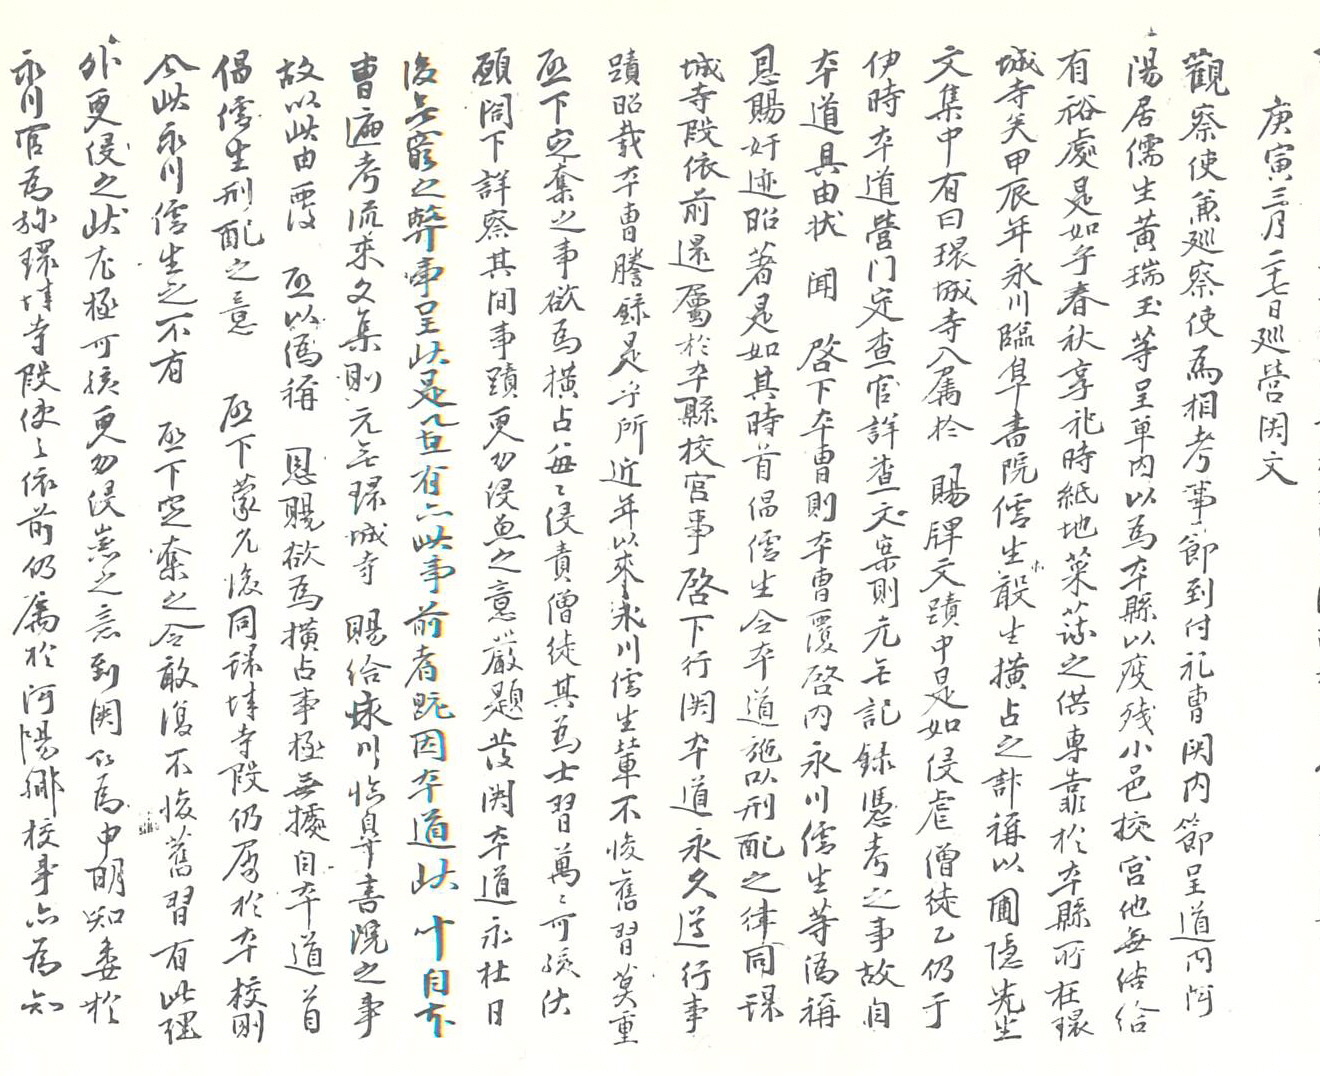 庚寅三月二十七日巡營関文
觀察使兼巡察使爲相考事節到付礼曹関内節呈道内河
陽居儒生黃瑞玉等呈單内以爲本縣以疲残小邑校宮他無結給
有裕處是如乎春秋享祀時紙地菜蔬之供專靠於本縣所在環
城寺矣甲辰年永川臨皐書院儒生敢生橫占之計稱以圃隱先生
文集中有曰環城寺入属於 賜牌文蹟中是如侵虐僧徒乙仍于
伊時本道營门定查官詳查文案則元無記録憑考之事故自
本道具由状 聞 啓下本曹則本曹覆啓内永川儒生等僞稱
恩賜奸迹昭著是如其時首倡儒生令本道施以刑配之律同環
城寺段依前還屬於本縣校宮事 啓下行関本道永久遵行事
蹟昭載本曹謄録是乎所近年以來永川儒生輩不悛舊習莫重
啓下定奪之事欲爲橫占每每侵責僧徒其爲士習萬萬可痎伏
願閤下詳察其間事蹟更勿侵漁之意嚴題發関本道永杜日
後無窮之弊事呈此是置有亦此事前者既因本道此 叱自本
曹遍考流来文集則元無環城寺 賜給永川臨皐書院之事
故以此由覆 啓以僞稱 恩賜欲爲橫占事極無據自本道首
倡儒生刑配之意 啓下蒙允後同環城寺段仍属於本校則
今此永川儒生之不有 啓下定奪之令敢復不悛舊習有此理
外更侵之状尤極可痎更勿侵虐之意到関以爲申明知委於
永川官爲旀環城寺段使之依前仍属於河陽鄉校事亦爲知